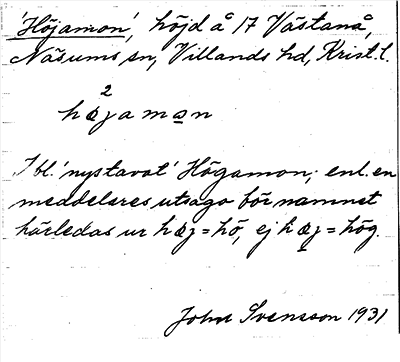 'Höjamon', höjd å 17 Västanå,
Näsums sn, Villands hd, Krist. l.
2
hœjamo̲n
I bl. 'nystavat' Högamon; enl. en
meddelares utsago bör namnet
härledas ur hœj = hö, ej hœ̲j = hög.
John Svensson 1931